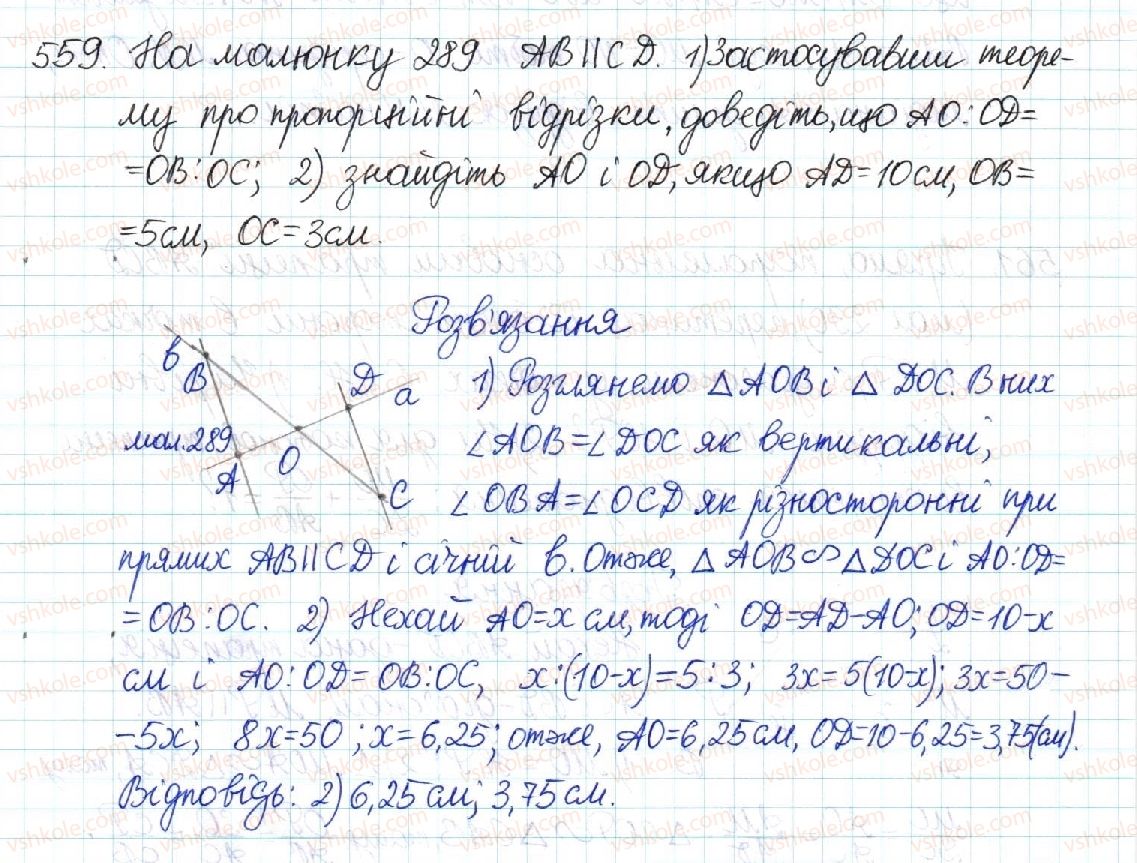 559. На малюнку 289 AB||CD. 1) Застосувавши теоре-
му про пропорційні відрізки, доведіть, що AO:OD=
=OB:OC; 2) знайдіть AO і OD, якщо AD=10см, OB=
=5см, OC=3см.
Розв'язання
b
B
D a
мал.289
A O
C
1) Розглянемо △AOB і △DOC. В них
∠AOB=∠DOC як вертикальні,
∠OBA=∠OCD як різносторонні при
прямих AB||CD і січній b. Отже, △AOB∽△DOC і AO:OD=
=OB:OC. 2) Нехай AO=x см, тоді OD=AD-AO; OD=10-x
см і AO:OD=OB:OC, x:(10-x)=5:3; 3x=5(10-x); 3x=50-
-5x; 8x=50; x=6,25; отже, AO=6,25см, OD=10-6,25=3,75(см).
Відповідь: 2) 6,25см; 3,75см.